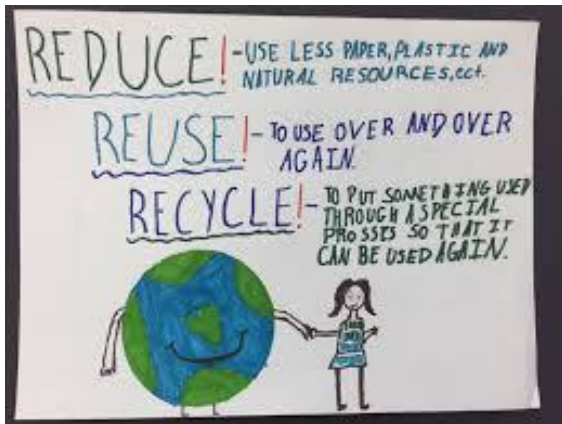 REDUCE! - USE LESS PAPER, PLASTIC AND
NATURAL RESOURCES, ect.
REUSE! - TO USE OVER AND OVER
AGAIN.
RECYCLE! - TO PUT SOMETHING USED
THROUGH A SPECIAL
PROSSES SO THAT IT
CAN BE USED AGAIN.